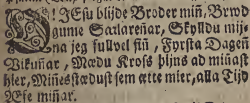 O! JEsu blijde Broder miñ, Brwd
gumme Saalareñar, Skylldu mij-
na jeg fullvel fiñ, Fyrsta Dagen
Vikuñar, Mædu Kross þijns ad miñast
hier, Miñestædust sem ætte mier, alla Tijd
Æfe miñar.